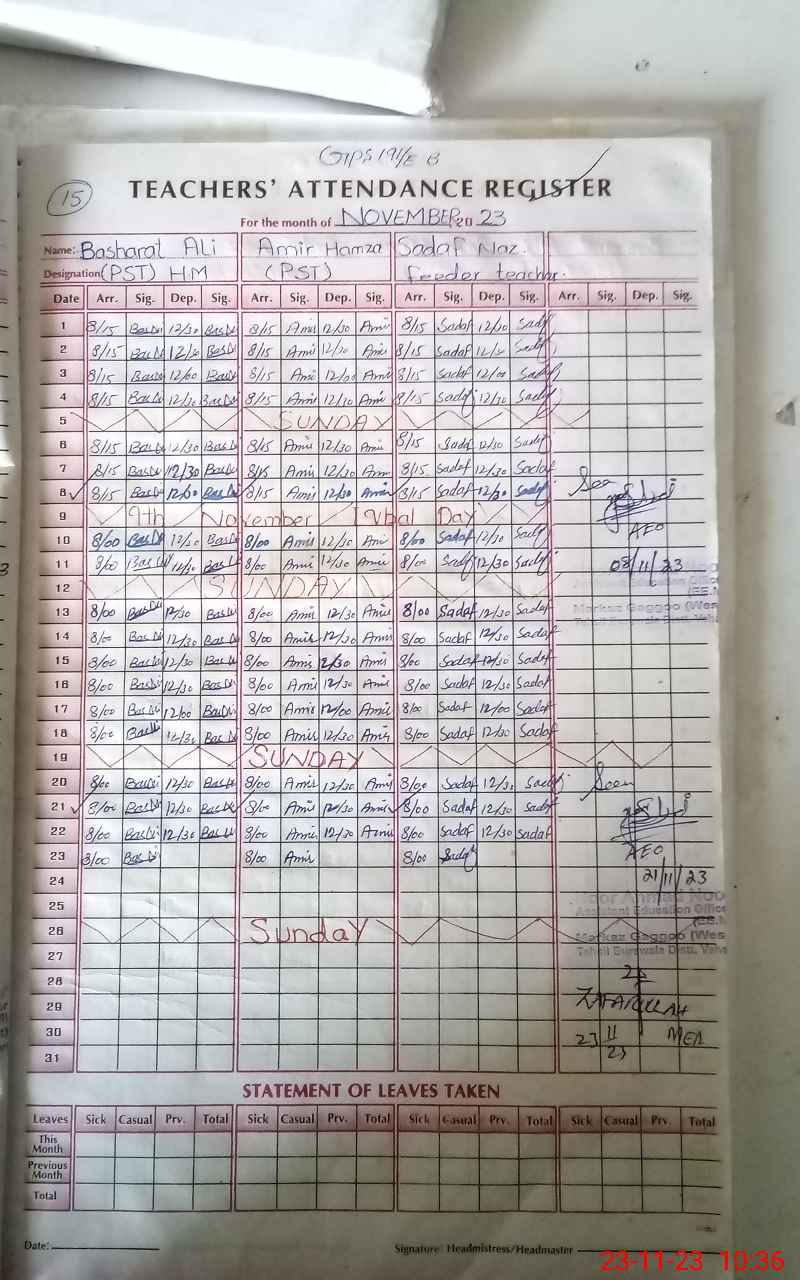 GTPS 191/E B
15
TEACHERS' ATTENDANCE REGISTER
For the month of NOVEMBER 20 23
Name: Basharat Ali Amir Hamza Sadaf Naz
Designation (PST) HM (PST) feeder teacher.
Date Arr. Sig. Dep. Sig. Arr. Sig. Dep. Sig. Arr. Sig. Dep. Sig. Arr. Sig. Dep. Sig.
1 8/15 12/30 8/15 Amir 12/30 Amir 8/15 Sadaf 12/30 Sadaf
2 8/15 12/30 8/15 Amir 12/30 Amir 8/15 Sadaf 12/30 Sadaf
3 8/15 12/00 8/15 Amir 12/00 Amir 8/15 Sadaf 12/00 Sadaf
4 8/15 12/30 8/15 Amir 12/30 Amir 8/15 Sadaf 12/30 Sadaf
5 SUNDAY
6 8/15 12/30 8/15 Amir 12/30 Amir 8/15 Sadaf 12/30 Sadaf
7 8/15 12/30 8/15 Amir 12/30 Amir 8/15 Sadaf 12/30 Sadaf
8 8/15 12/30 8/15 Amir 12/30 Amir 8/15 Sadaf 12/30 Sadaf Seen
9 9th November Iqbal Day
10 8/00 12/30 8/00 Amir 12/30 Amir 8/00 Sadaf 12/30 Sadaf AEO
11 8/00 12/30 8/00 Amir 12/30 Amir 8/00 Sadaf 12/30 Sadaf 08/11/23
12 SUNDAY
13 8/00 12/30 8/00 Amir 12/30 Amir 8/00 Sadaf 12/30 Sadaf Markaz Gaggoo (Wes
14 8/00 12/30 8/00 Amir 12/30 Amir 8/00 Sadaf 12/30 Sadaf
15 8/00 12/30 8/00 Amir 12/30 Amir 8/00 Sadaf 12/30 Sadaf
16 8/00 12/30 8/00 Amir 12/30 Amir 8/00 Sadaf 12/30 Sadaf
17 8/00 12/00 8/00 Amir 12/00 Amir 8/00 Sadaf 12/00 Sadaf
18 8/00 12/30 8/00 Amir 12/30 Amir 8/00 Sadaf 12/30 Sadaf
19 SUNDAY
20 8/00 12/30 8/00 Amir 12/30 Amir 8/00 Sadaf 12/30 Sadaf Seen
21 8/00 12/30 8/00 Amir 12/30 Amir 8/00 Sadaf 12/30 Sadaf
22 8/00 12/30 8/00 Amir 12/30 Amir 8/00 Sadaf 12/30 Sadaf
23 8/00 8/00 Amir 8/00 Sadaf AEO
24 21/11/23
25 Noor Ahmad Noo
Assistant Education Office
26 Sunday Markaz Gaggoo (Wes
27 Tehsil Burewala Distt. Veha
28
29 ZAFARULLAH
30 23 11 23 MEA
31
STATEMENT OF LEAVES TAKEN
Leaves Sick Casual Prv. Total Sick Casual Prv. Total Sick Casual Prv. Total Sick Casual Prv. Total
This Month
Previous Month
Total
Date:
Signature: Headmistress/Headmaster
23-11-23 10:36